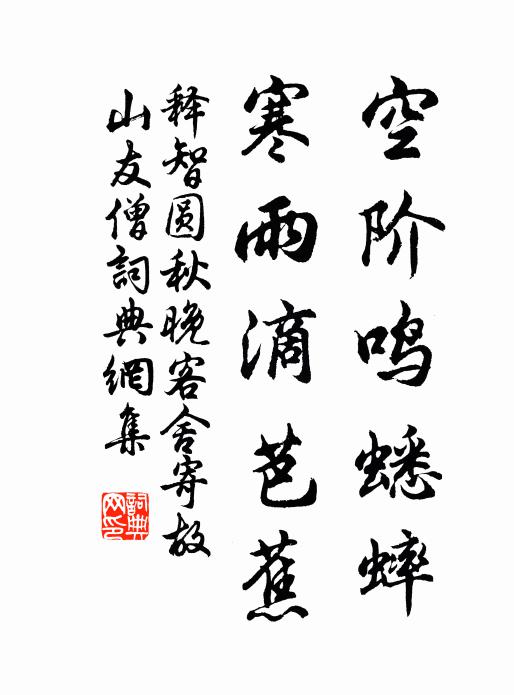 空阶鸣蟋蟀
寒雨滴芭蕉
释智圆秋晚客舍寄故
山友僧詞典網集
詞典
网印